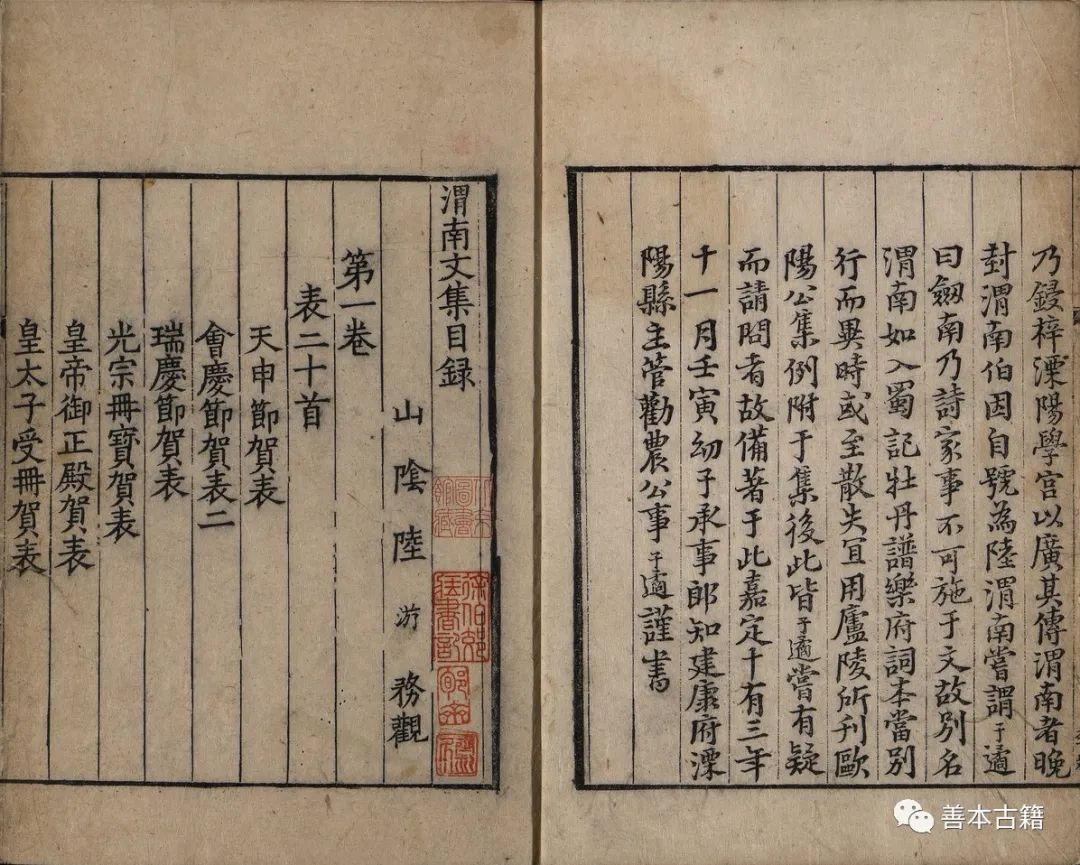 乃鋟梓溧陽學宮以廣其傳渭南者晚
封渭南伯因自號為陸渭南嘗謂子遹
曰劔南乃詩家事不可施于文故别名
渭南如入蜀記牡丹譜樂府詞本當别
行而異時或至散失宜用廬陵所刊歐
陽公集例附于集後此皆子遹嘗有疑
而請問者故備著于此嘉定十有三年
十一月壬寅幼子承事郎知建康府溧
陽縣主管勸農公事子遹謹書
渭南文集目録
山陰陸游務觀
第一卷
表二十首
天申節賀表
會慶節賀表二
瑞慶節賀表
光宗冊寶賀表
皇帝御正殿賀表
皇太子受冊賀表
善本古籍